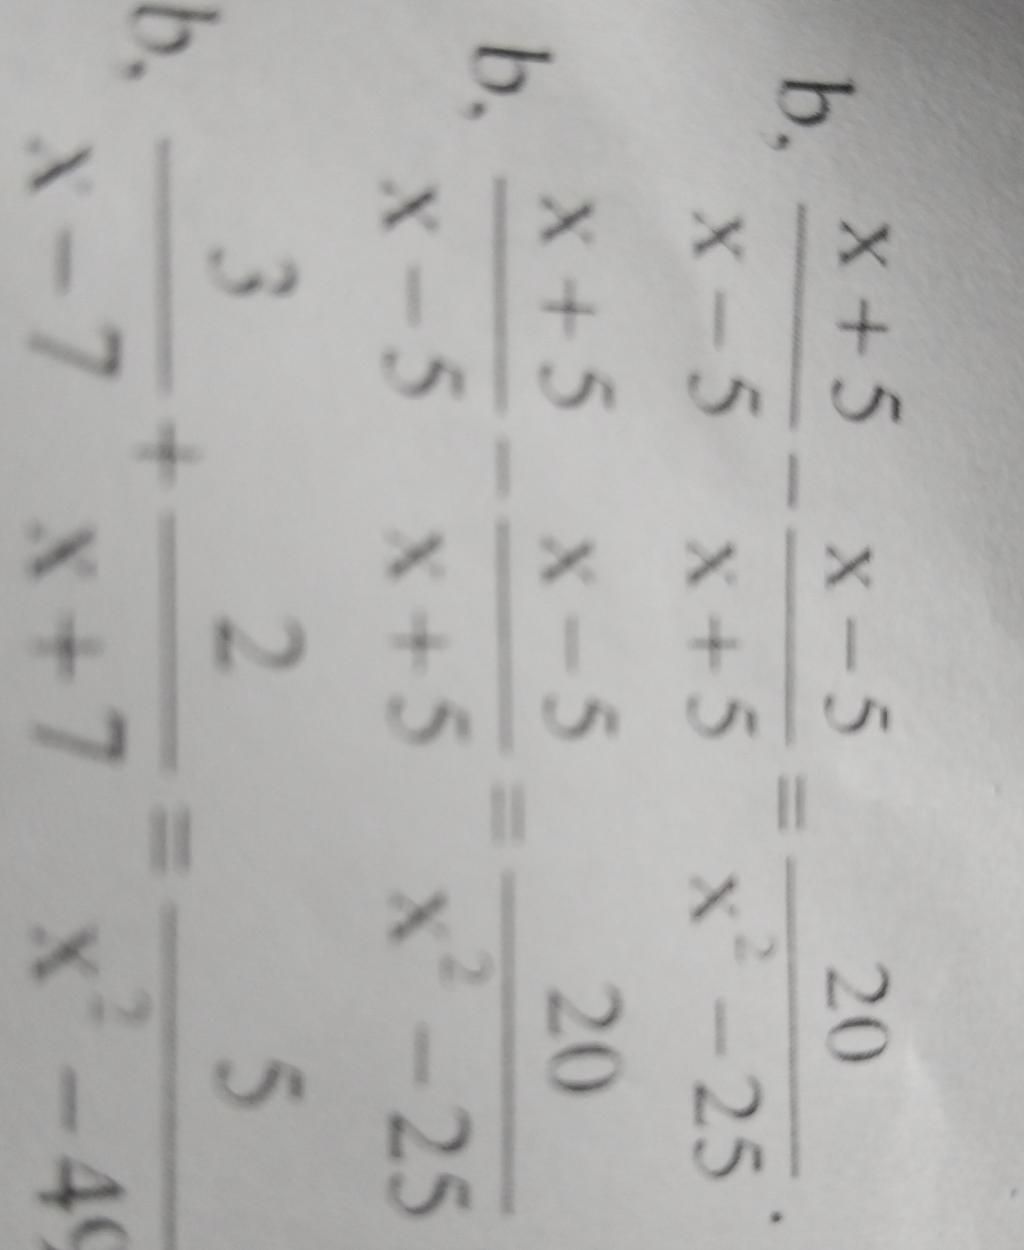 b, \frac{x+5}{x-5} - \frac{x-5}{x+5} = \frac{20}{x^2-25}.
b, \frac{x+5}{x-5} - \frac{x-5}{x+5} = \frac{20}{x^2-25}
b, \frac{3}{x-7} + \frac{2}{x+7} = \frac{5}{x^2-49}